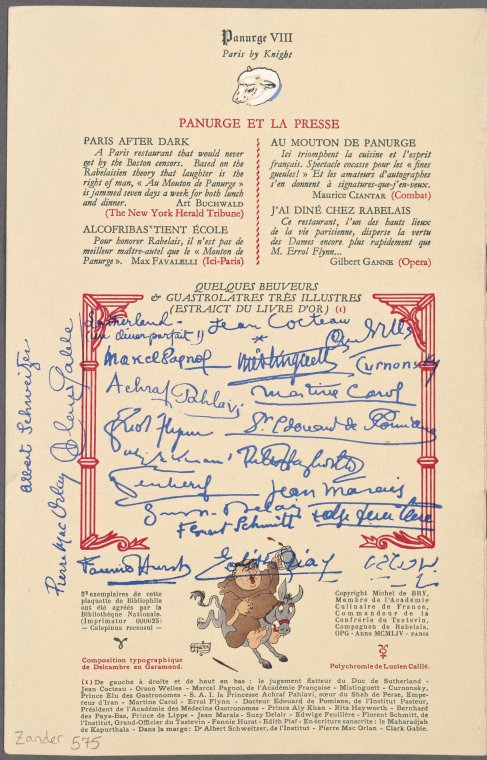 Panurge VIII
Paris by Knight
PANURGE ET LA PRESSE
PARIS AFTER DARK
A Paris restaurant that would never
get by the Boston censors. Based on the
Rabelaisien theory that laughter is the
right of man, « Au Mouton de Panurge »
is jammed seven days a week for both lunch
and dinner. Art BUCHWALD
(The New York Herald Tribune)
ALCOFRIBAS TIENT ÉCOLE
Pour honorer Rabelais, il n'est pas de
meilleur maître-autel que le « Mouton de
Panurge ». Max FAVALELLI (Ici-Paris)
AU MOUTON DE PANURGE
Ici triomphent la cuisine et l'esprit
français. Spectacle cocasse pour les « fines
gueules! » Et les amateurs d'autographes
s'en donnent à signatures-que-j'en-veux.
Maurice CIANTAR (Combat)
J'AI DINÉ CHEZ RABELAIS
Ce restaurant, l'un des hauts lieux
de la vie parisienne, disperse la vertu
des Dames encore plus rapidement que
M. Errol Flynn...
Gilbert GANNE (Opera)
QUELQUES BEUVEURS
& GUASTROLATRES TRÈS ILLUSTRES
(ESTRAICT DU LIVRE D'OR) (1)
Sutherland -
(un diner parfait!!)
Jean Cocteau
*
Orson Welles
Marcel Pagnol
Mistinguett
Curnonsky
Achraf Pahlavi
Martine Carol
Errol Flynn
Dr Edouard de Pomiane
Aly Khan
Rita Hayworth
Bernhard
Jean Marais
Suzy Delair
Florent Schmitt
Edwige Feuillère
Fannie Hurst
Edith Piaf
Albert Schweitzer
Pierre Mac Orlan
Clark Gable
2ˢ exemplaires de cette
plaquette de Bibliophile
ont été agréés par la
Bibliothèque Nationale.
(Imprimatur 000625)
— Calepinus recensui —
Composition typographique
de Delcambre en Garamond.
Dubout
Copyright Michel de BRY,
Membre de l'Académie
Culinaire de France,
Commandeur de la
Confrérie du Tastevin,
Compagnon de Rabelais.
OPG - Anno MCMLIV - PARIS
Polychromie de Lucien Caillé.
(1) De gauche à droite et de haut en bas : le jugement flatteur du Duc de Sutherland -
Jean Cocteau - Orson Welles - Marcel Pagnol, de l'Académie Française - Mistinguett - Curnonsky,
Prince Elu des Gastronomes - S. A. I. la Princesse Achraf Pahlavi, sœur du Shah de Perse, Empe-
reur d'Iran - Martine Carol - Errol Flynn - Docteur Edouard de Pomiane, de l'Institut Pasteur,
Président de l'Académie des Médecins Gastronomes - Prince Aly Khan - Rita Hayworth - Bernhard
des Pays-Bas, Prince de Lippe - Jean Marais - Suzy Delair - Edwige Feuillère - Florent Schmitt, de
l'Institut, Grand-Officier du Tastevin - Fannie Hurst - Edith Piaf - En écriture sanscrite : le Maharadjah
de Kapurthala - Dans la marge : Dʳ Albert Schweitzer, de l'Institut - Pierre Mac Orlan - Clark Gable.
Zander 575